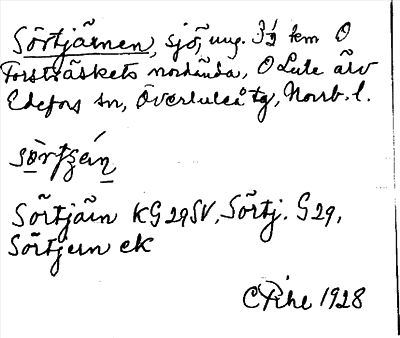 Sörtjärnen, sjö, ung. 3½ km O
Forsträskets norända, O Lule älv
Edefors sn, Överluleå tg, Norrb. l.
Sörtjärn KG29SV, Sörtj. G29,
Sörtjern ek
1928